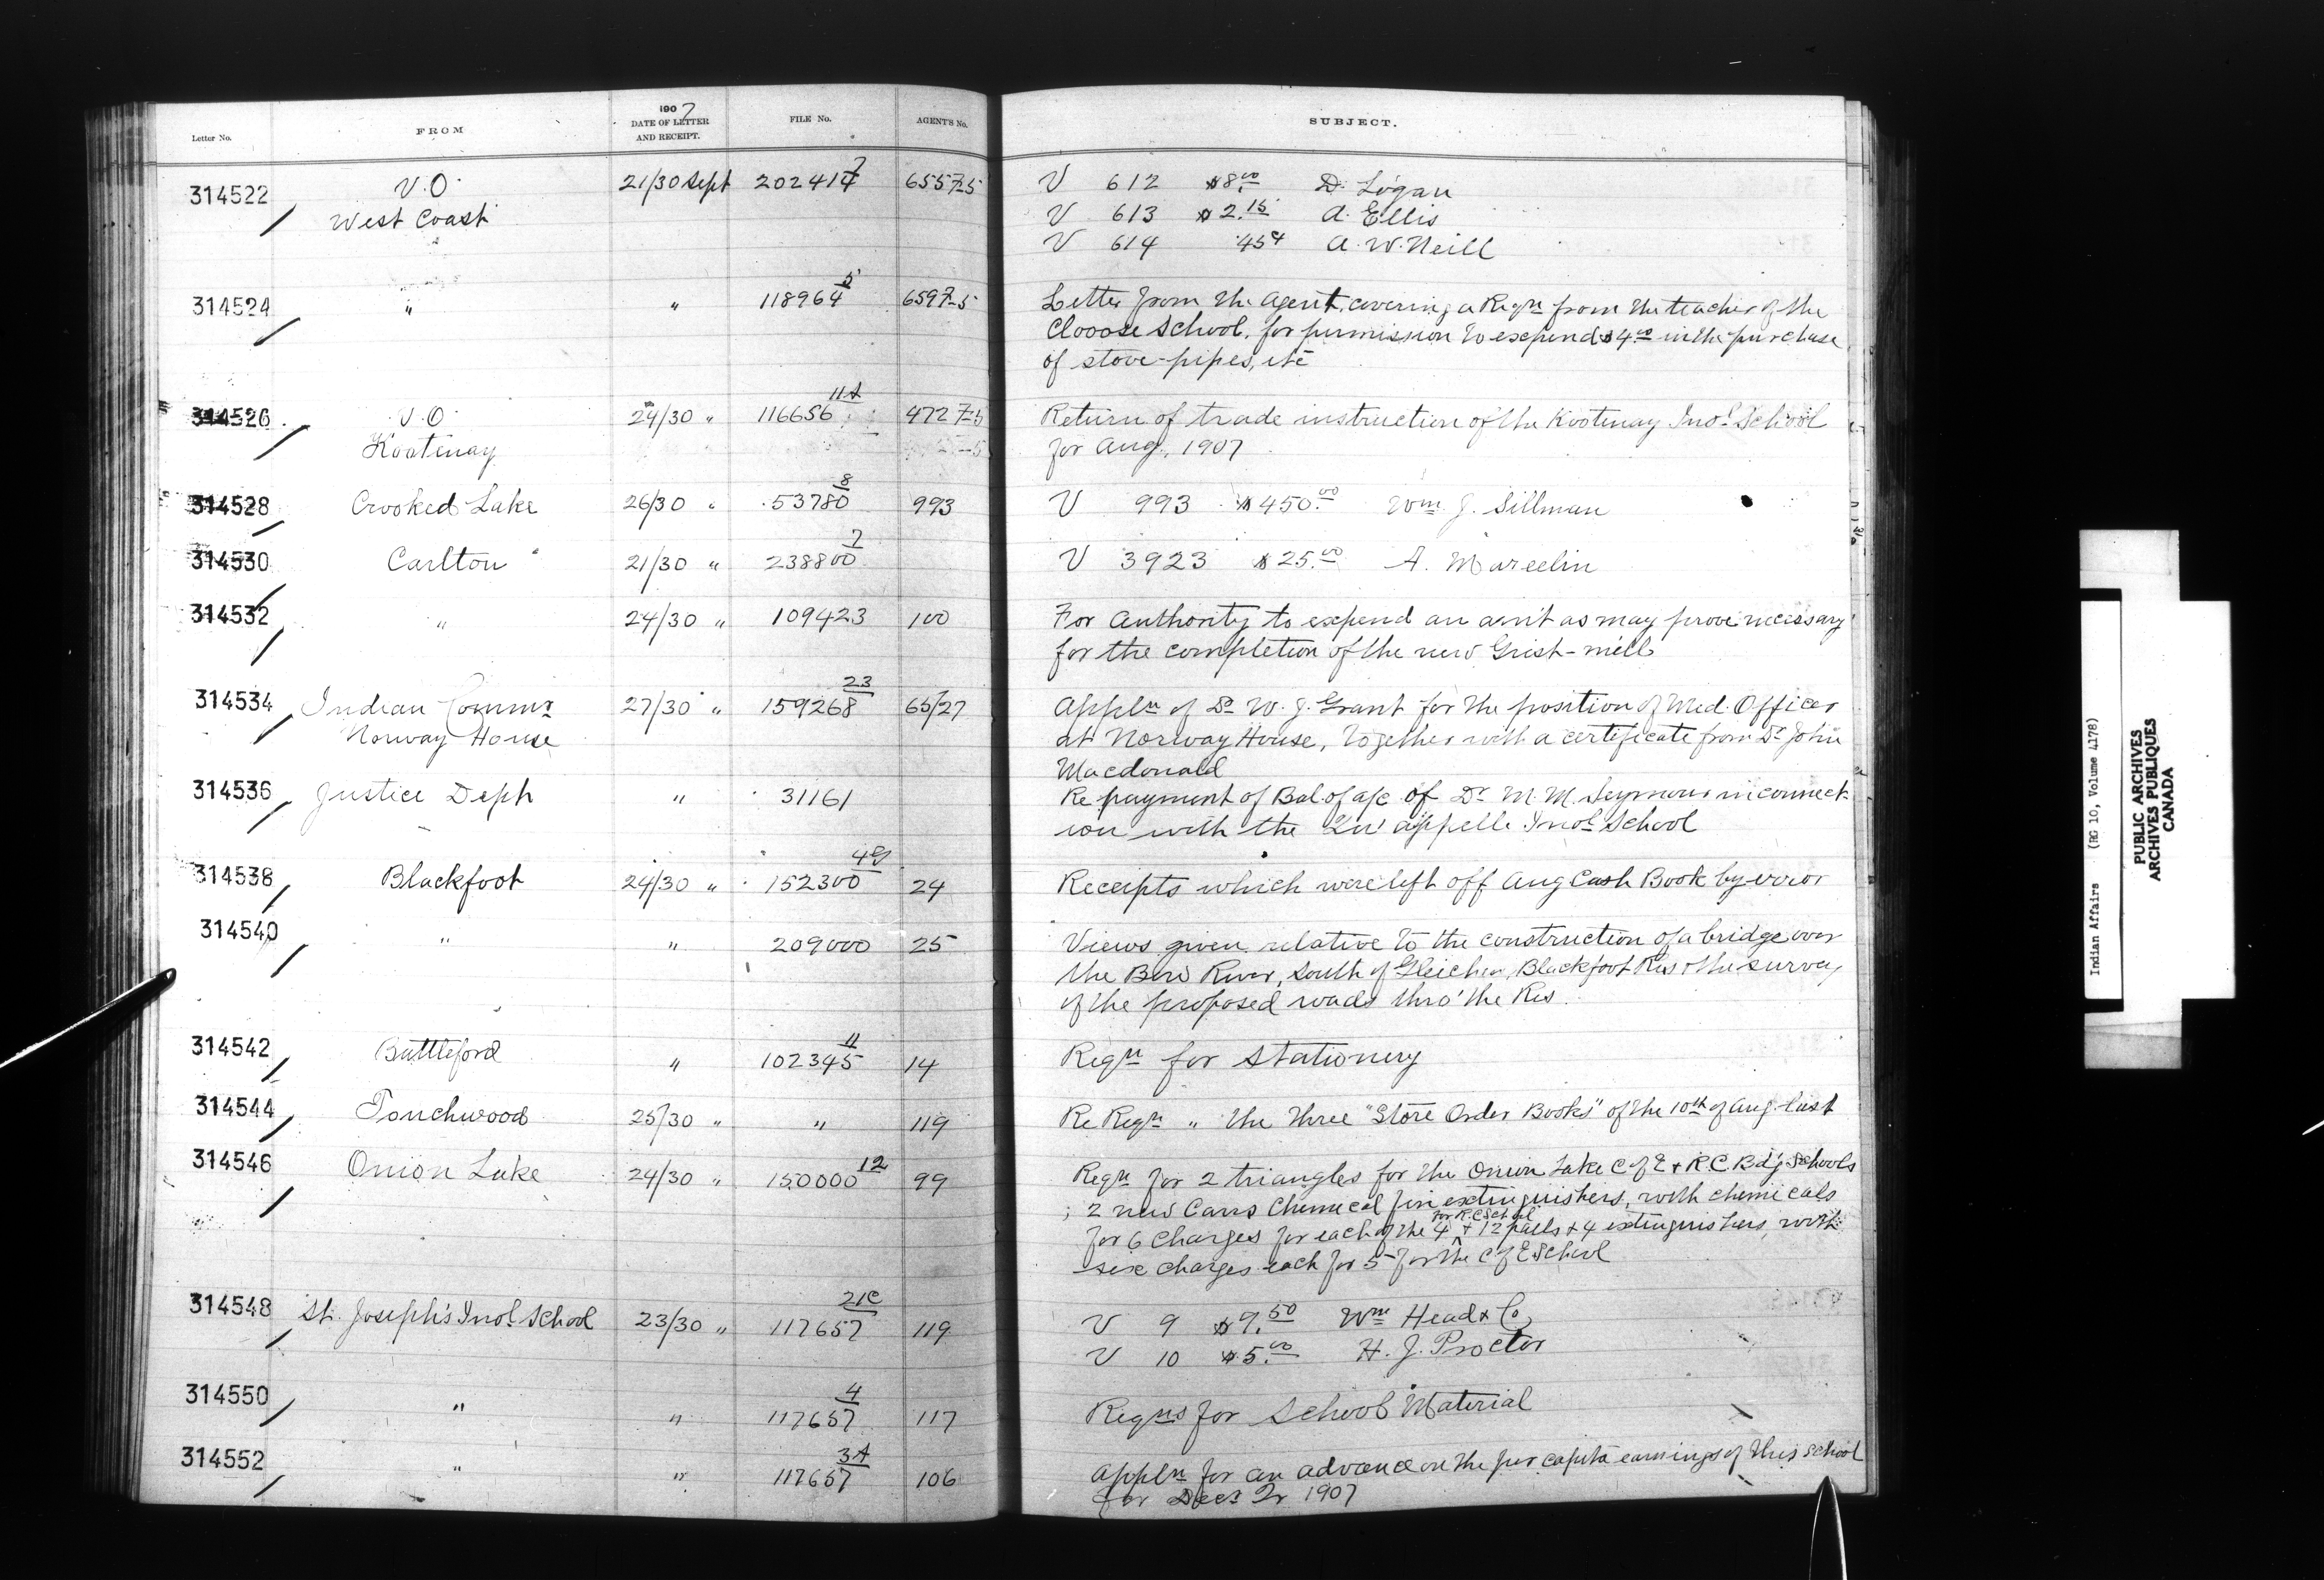 Letter No. FROM 1907 DATE OF LETTER AND RECEIPT. FILE No. AGENT'S No. SUBJECT.
314522 V.O. 21/30 Sept 202414 7 6557-5 V 612 $8.00 D. Logan
West Coast V 613 $2.15 A. Ellis
V 614 .45c A. W. Neill
314524 " " 118964 5 6597-5 Letter from the Agent, covering a Reqn from the teacher of the
Clooose School, for permission to expend $4.00 in the purchase
of stove-pipes, etc
314526 V.O. 24/30 " 116656 11A 4727-5 Return of trade instruction of the Kootenay Indl School
Kootenay for Aug. 1907
314528 Crooked Lake 26/30 " 53780 8 993 V 993 $450.00 Wm. J. Sillman
314530 Carlton 21/30 " 238800 7 V 3923 $25.00 A. Marcelin
314532 " 24/30 " 109423 100 For Authority to expend an am't as may prove necessary
for the completion of the new Grist-mill
314534 Indian Commr 27/30 " 159268 23 65/27 Appln of Dr W. J. Grant for the position of Med. Officer
Norway House at Norway House, together with a certificate from Dr John
Macdonald
314536 Justice Dept " 31161 Re payment of Bal of a/c of Dr M. M. Seymour in connect-
ion with the Qu'appelle Indl School
314538 Blackfoot 24/30 " 152300 4G 24 Receipts which were left off Aug Cash Book by error
314540 " " 209000 25 Views given relative to the construction of a bridge over
the Bow River, South of Gleichen, Blackfoot Res & the survey
of the proposed roads thro' the Res.
314542 Battleford " 102345 11 14 Reqn for Stationery
314544 Touchwood 25/30 " " 119 Re Reqn " the three "Store Order Books" of the 10th of Aug. last
314546 Onion Lake 24/30 " 150000 12 99 Reqn for 2 triangles for the Onion Lake C of E & R.C. Bd'g Schools
; 2 new Carrs Chemical fire extinguishers, with chemicals
for R.C School
for 6 charges for each of the 4 & 12 pails & 4 extinguishers, with
six charges each for 5 for the C of E School
314548 St. Joseph's Indl School 23/30 " 117657 21C 119 V 9 $9.50 Wm Head & Co
V 10 $5.00 H. J. Proctor
314550 " " 117657 4 117 Reqns for School Material
314552 " " 117657 3A 106 Appln for an advance on the per capita earnings of this School
for Decr Qr 1907
Indian Affairs (RG 10, Volume 4178)
PUBLIC ARCHIVES
ARCHIVES PUBLIQUES
CANADA